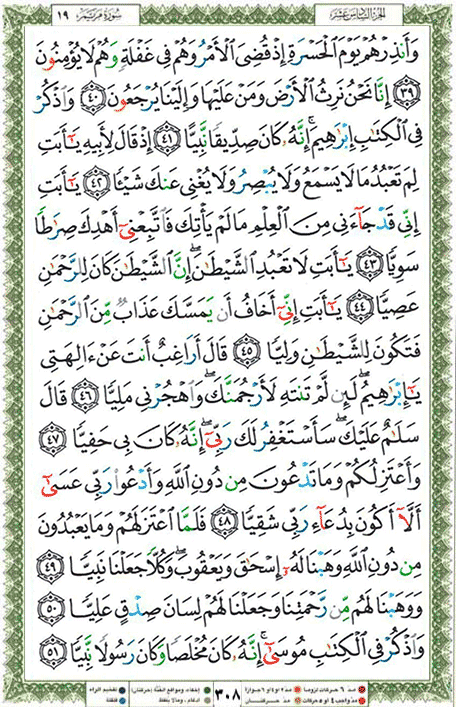 سورة مريم ١٩ الجزء السادس عشر
وَأَنذِرْهُمْ يَوْمَ ٱلْحَسْرَةِ إِذْ قُضِىَ ٱلْأَمْرُ وَهُمْ فِى غَفْلَةٍ وَهُمْ لَا يُؤْمِنُونَ
٣٩ إِنَّا نَحْنُ نَرِثُ ٱلْأَرْضَ وَمَنْ عَلَيْهَا وَإِلَيْنَا يُرْجَعُونَ ٤٠ وَٱذْكُرْ
فِى ٱلْكِتَٰبِ إِبْرَٰهِيمَ ۚ إِنَّهُۥ كَانَ صِدِّيقًا نَّبِيًّا ٤١ إِذْ قَالَ لِأَبِيهِ يَٰٓأَبَتِ
لِمَ تَعْبُدُ مَا لَا يَسْمَعُ وَلَا يُبْصِرُ وَلَا يُغْنِى عَنكَ شَيْـًٔا ٤٢ يَٰٓأَبَتِ
إِنِّى قَدْ جَآءَنِى مِنَ ٱلْعِلْمِ مَا لَمْ يَأْتِكَ فَٱتَّبِعْنِىٓ أَهْدِكَ صِرَٰطًا
سَوِيًّا ٤٣ يَٰٓأَبَتِ لَا تَعْبُدِ ٱلشَّيْطَٰنَ ۖ إِنَّ ٱلشَّيْطَٰنَ كَانَ لِلرَّحْمَٰنِ
عَصِيًّا ٤٤ يَٰٓأَبَتِ إِنِّىٓ أَخَافُ أَن يَمَسَّكَ عَذَابٌ مِّنَ ٱلرَّحْمَٰنِ
فَتَكُونَ لِلشَّيْطَٰنِ وَلِيًّا ٤٥ قَالَ أَرَاغِبٌ أَنتَ عَنْ ءَالِهَتِى
يَٰٓإِبْرَٰهِيمُ ۖ لَئِن لَّمْ تَنتَهِ لَأَرْجُمَنَّكَ ۖ وَٱهْجُرْنِى مَلِيًّا ٤٦ قَالَ
سَلَٰمٌ عَلَيْكَ ۖ سَأَسْتَغْفِرُ لَكَ رَبِّىٓ ۖ إِنَّهُۥ كَانَ بِى حَفِيًّا ٤٧
وَأَعْتَزِلُكُمْ وَمَا تَدْعُونَ مِن دُونِ ٱللَّهِ وَأَدْعُوا۟ رَبِّى عَسَىٰٓ
أَلَّآ أَكُونَ بِدُعَآءِ رَبِّى شَقِيًّا ٤٨ فَلَمَّا ٱعْتَزَلَهُمْ وَمَا يَعْبُدُونَ
مِن دُونِ ٱللَّهِ وَهَبْنَا لَهُۥٓ إِسْحَٰقَ وَيَعْقُوبَ ۖ وَكُلًّا جَعَلْنَا نَبِيًّا ٤٩
وَوَهَبْنَا لَهُم مِّن رَّحْمَتِنَا وَجَعَلْنَا لَهُمْ لِسَانَ صِدْقٍ عَلِيًّا ٥٠
وَٱذْكُرْ فِى ٱلْكِتَٰبِ مُوسَىٰٓ ۚ إِنَّهُۥ كَانَ مُخْلَصًا وَكَانَ رَسُولًا نَّبِيًّا ٥١
٣٠٨